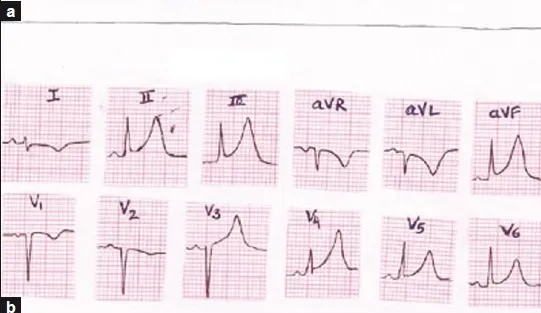 a
I II III aVR aVL aVF
V1 V2 V3 V4 V5 V6
b